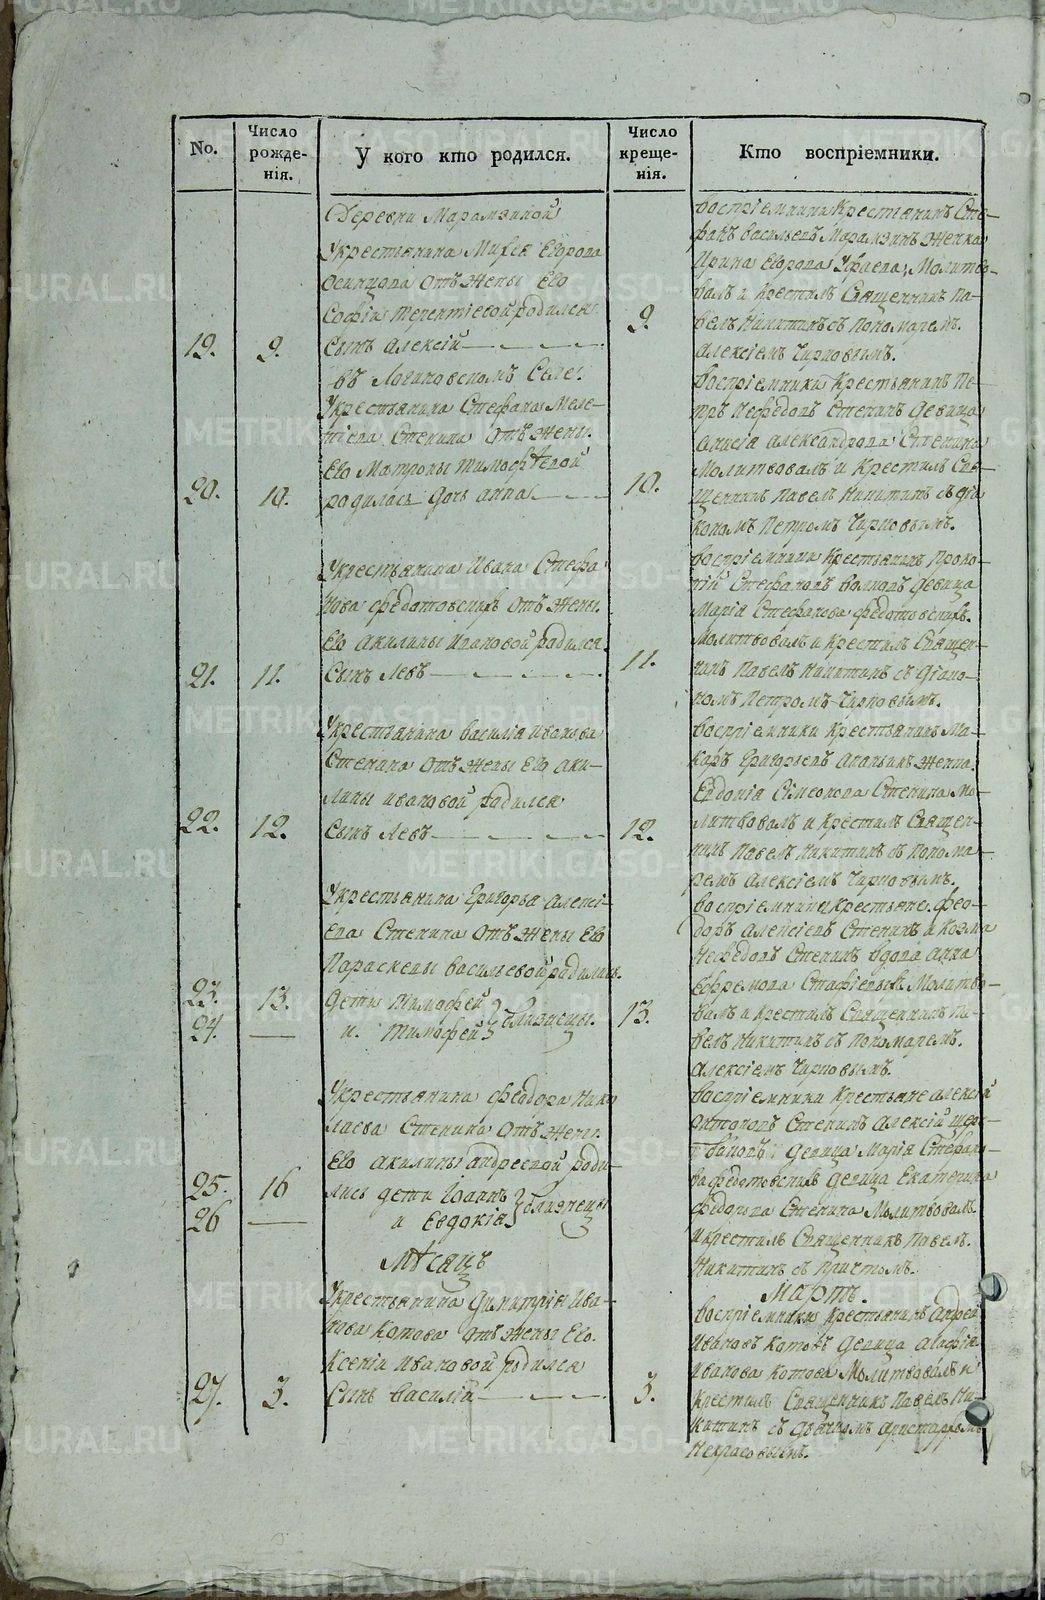 No.
Число рожденія.
У кого кто родился.
Число крещенія.
Кто воспріемники.
Деревни Марамзиной
У крестьянина
Егорова
Осинцова отъ жены его
Софіи Терентіевой родился
19. 9. сынъ Алексій
9.
воспріемники крестьянинъ Сте-
фанъ Васильевъ Марамзинъ женка
Ирина Егорова
Молитво-
валъ и крестилъ Священникъ Па-
велъ Никитинъ съ пономаремъ
Алексіемъ Чирковымъ.
въ Логиновскомъ Селе.
У крестьянина Стефана Меле-
тіева Стенина отъ жены
его Матроны Тимофѣевой
20. 10. родилась дочь Анна
10.
воспріемники крестьянинъ Пе-
тръ Нефедовъ Стенинъ девица
Анисія Александрова Стенина
Молитвовалъ и крестилъ Свя-
щенникъ Павелъ Никитинъ съ дья
кономъ Петромъ Чирковымъ.
У крестьянина Ивана Стефа
нова Федотовскихъ отъ жены
его Акилины Ивановой родился
21. 11. сынъ Левъ
11.
воспріемники крестьянинъ Проко-
пій Стефановъ Волковъ девица
Марія Стефанова Федотовскихъ.
Молитвовалъ и крестилъ Священ-
никъ Павелъ Никитинъ съ діако-
номъ Петромъ Чирковымъ.
У крестьянина Василія Иванова
Стенина отъ жены его Аки-
лины Ивановой родился
22. 12. сынъ Левъ
12.
воспріемники крестьянинъ Ма-
каръ Григорьевъ Ананьинъ женка
Евдокія Сімеонова Стенина Мо-
литвовалъ и крестилъ Священ-
никъ Павелъ Никитинъ съ понома-
ремъ Алексіемъ Чирковымъ.
У крестьянина Григорья Алексі-
ева Стенина отъ жены его
Параскевы Васильевой родились
23. 13. дети Тимофей
24. — и Тимофей близнецы.
13.
воспріемники крестьяне Фео-
доръ Алексіевъ Стенинъ и Козма
Нефедовъ Стенинъ вдова Анна
Ефремова
Молитво-
валъ и крестилъ Священникъ Па-
велъ Никитинъ съ пономаремъ
Алексіемъ Чирковымъ.
У крестьянина Феодора Нико
лаева Стенина отъ жены
его Акилины Андреевой роди-
25. 16 лись дети Іоаннъ
26 — и Евдокія близнецы
воспріемники крестьяне Алексій
Антоновъ Стенинъ Алексій Щер-
баковъ девица Марія Стефано-
ва Федотовскихъ девица Екатерина
Федорова Стенина Молитвовалъ
и крестилъ Священникъ Павелъ
Никитинъ съ причтомъ.
Мѣсяцъ
Мартъ.
У крестьянина Димитрія Ива-
нова Котова отъ жены его
Ксеніи Ивановой родился
27. 3. сынъ Василій
3.
воспріемники крестьянинъ Андрей
Ивановъ Котовъ девица Агафія
Иванова Котова Молитвовалъ и
крестилъ Священникъ Павелъ Ни-
китинъ съ дьячкомъ Аристархомъ
Некрасовымъ.
METRIKI.GASO-URAL.RU